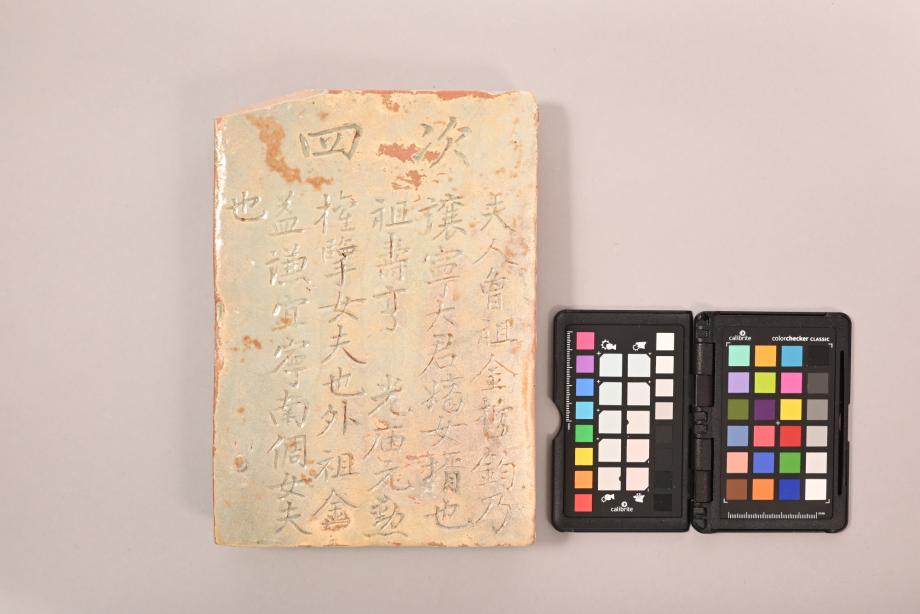 次四
夫人曾祖金鈞乃
讓寧大君嫡女壻也
祖壽亨 光廟元勳
權擥女夫也外祖金
益謙宜寧南倜女夫
也
calibrite
calibrite
colorchecker CLASSIC